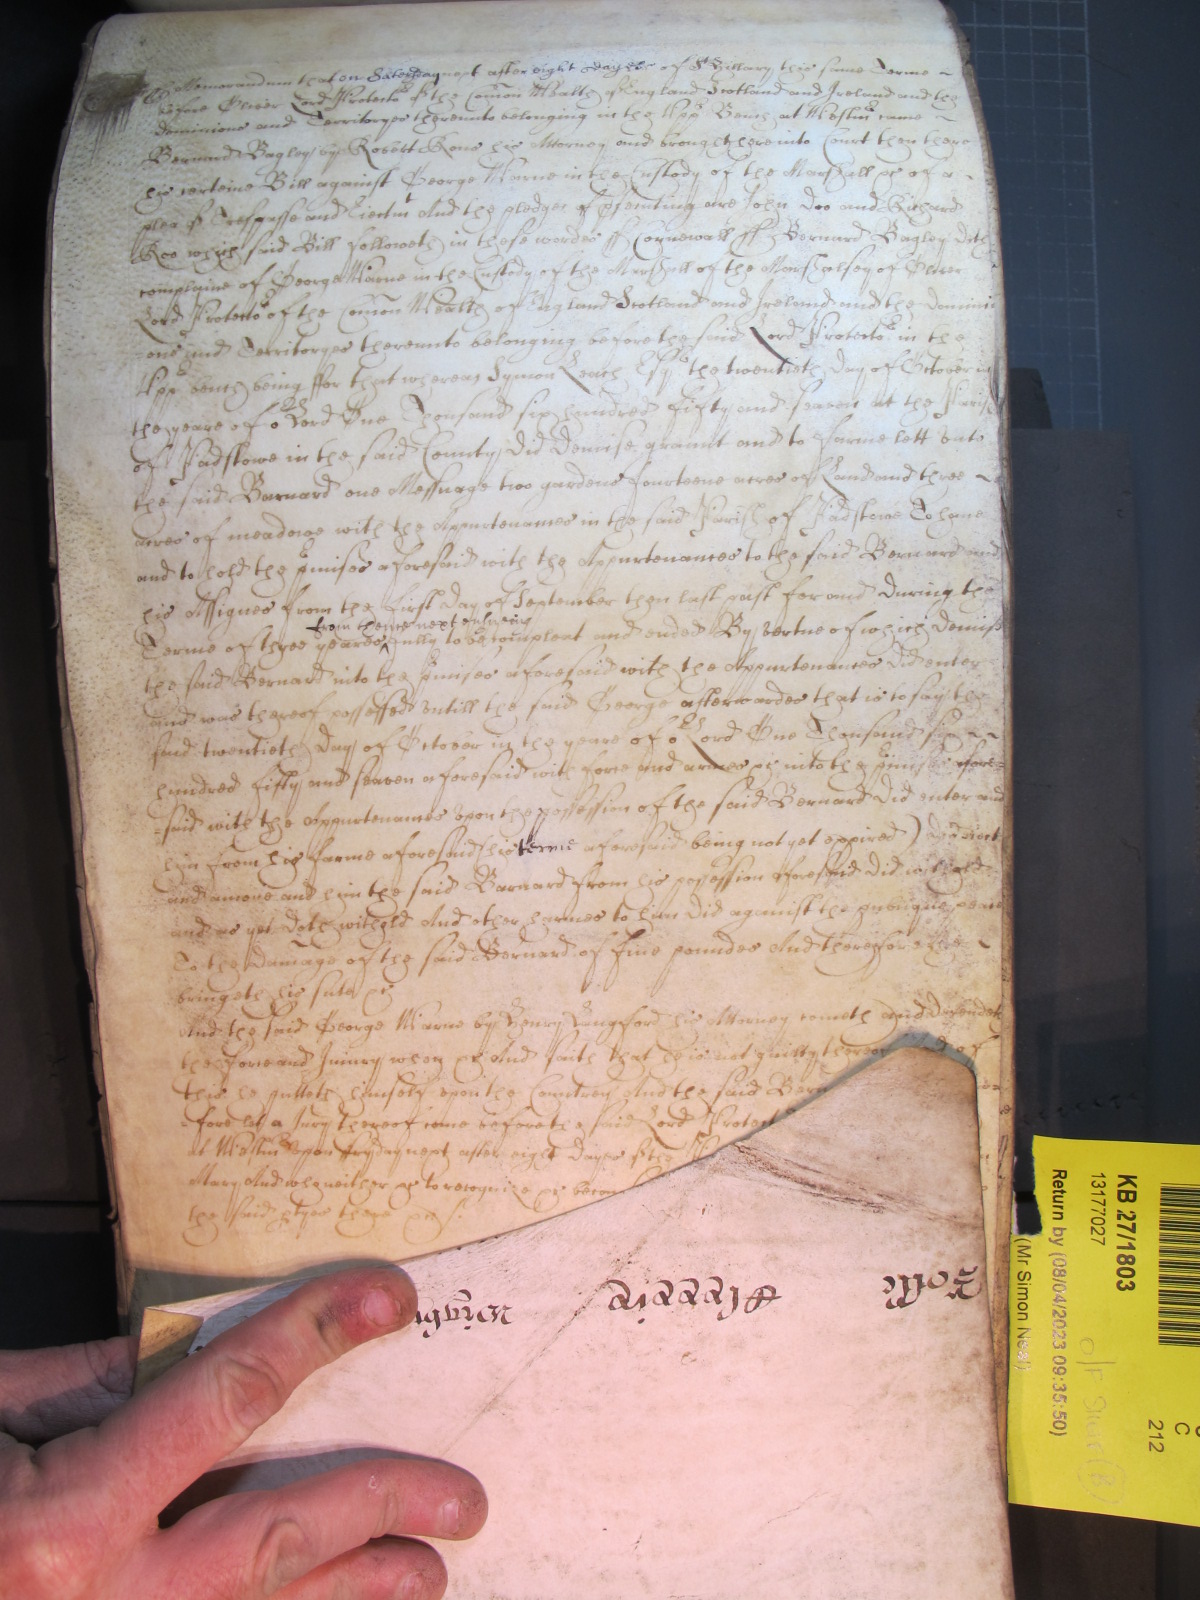 Memorandum that on Saterday next after eight dayes of St Hillary this same Terme
before Oliver Lord Protector of the Comon Wealth of England Scotland and Ireland and the
dominions and Territoryes thereunto belonging in the Upp Bench at Westmr came
Bernard Bagley by Robert Kous his Attorney and brought here into Court then there
his certeine Bill against George Warne in the Custody of the Marshall &c of a
plea of Trespasse and Eiectmt And the pledges of psecuting are John Doo and Richard
Roo which said Bill followeth in these wordes ss Cornewall ss Bernard Bagley doth
complaine of George Warne in the Custody of the Marshall of the Marshalsey of Oliver
Lord Protector of the Comon Wealth of England Scotland and Ireland and the Domini
-ons and Territoryes thereunto belonging before the said Lord Protector in the
Upp bench being ffor that whereas Symon Leach Esqr the twentieth Day of October in
the yeare of or Lord One Thousand six hundred fifty and seaven at the Parish
of Padstowe in the said County did demise graunt and to farme lett unto
the said Barnard one Messuage two gardens fourteene acres of Land and three
acres of meadowe with the Appurtenances in the said Parish of Padstowe To have
and to hold the pmises aforesaid with the Appurtenances to the said Bernard and
his Assignes from the first day of September then last past for and during the
from thence next ensueing
Terme of three yeares fully to be compleat and ended By vertue of which demise
the said Bernard into the pmises aforesaid with the Appurtenances did enter
and was thereof possessed untill the said George afterwardes that is to say the
said twentieth Day of October in the yeare of or Lord One Thousand six
hundred fifty and seaven aforesaid with force and armes &c into the pmises afore
-said with the Appurtenances upon the possession of the said Bernard did enter and
him from his farme aforesaid (his terme aforesaid being not yet expired) did eiect
and amove and him the said Barnard from his possession aforesaid did withhold
and as yet doth withold And other harmes to him did against the publique peace
To the Damage of the said Bernard of five poundes And therefore
bringeth his suite &c
And the said George Warne by Henry Langford his Attorney cometh and defendeth
the force and Iniury when &c And saith that he is not guilty thereof And of
this he putteth himself upon the Countrey And the said Bern
-fore let a Jury thereof come before the said Lord Protect
at Westmr upon ffryday next after eight dayes of the
Mary And who neither &c to recognize &c because
the said ptyes there &c
KB 27/1803
13177027
Return by (08/04/2023 09:35:50)
(Mr Simon Neal)
C
212